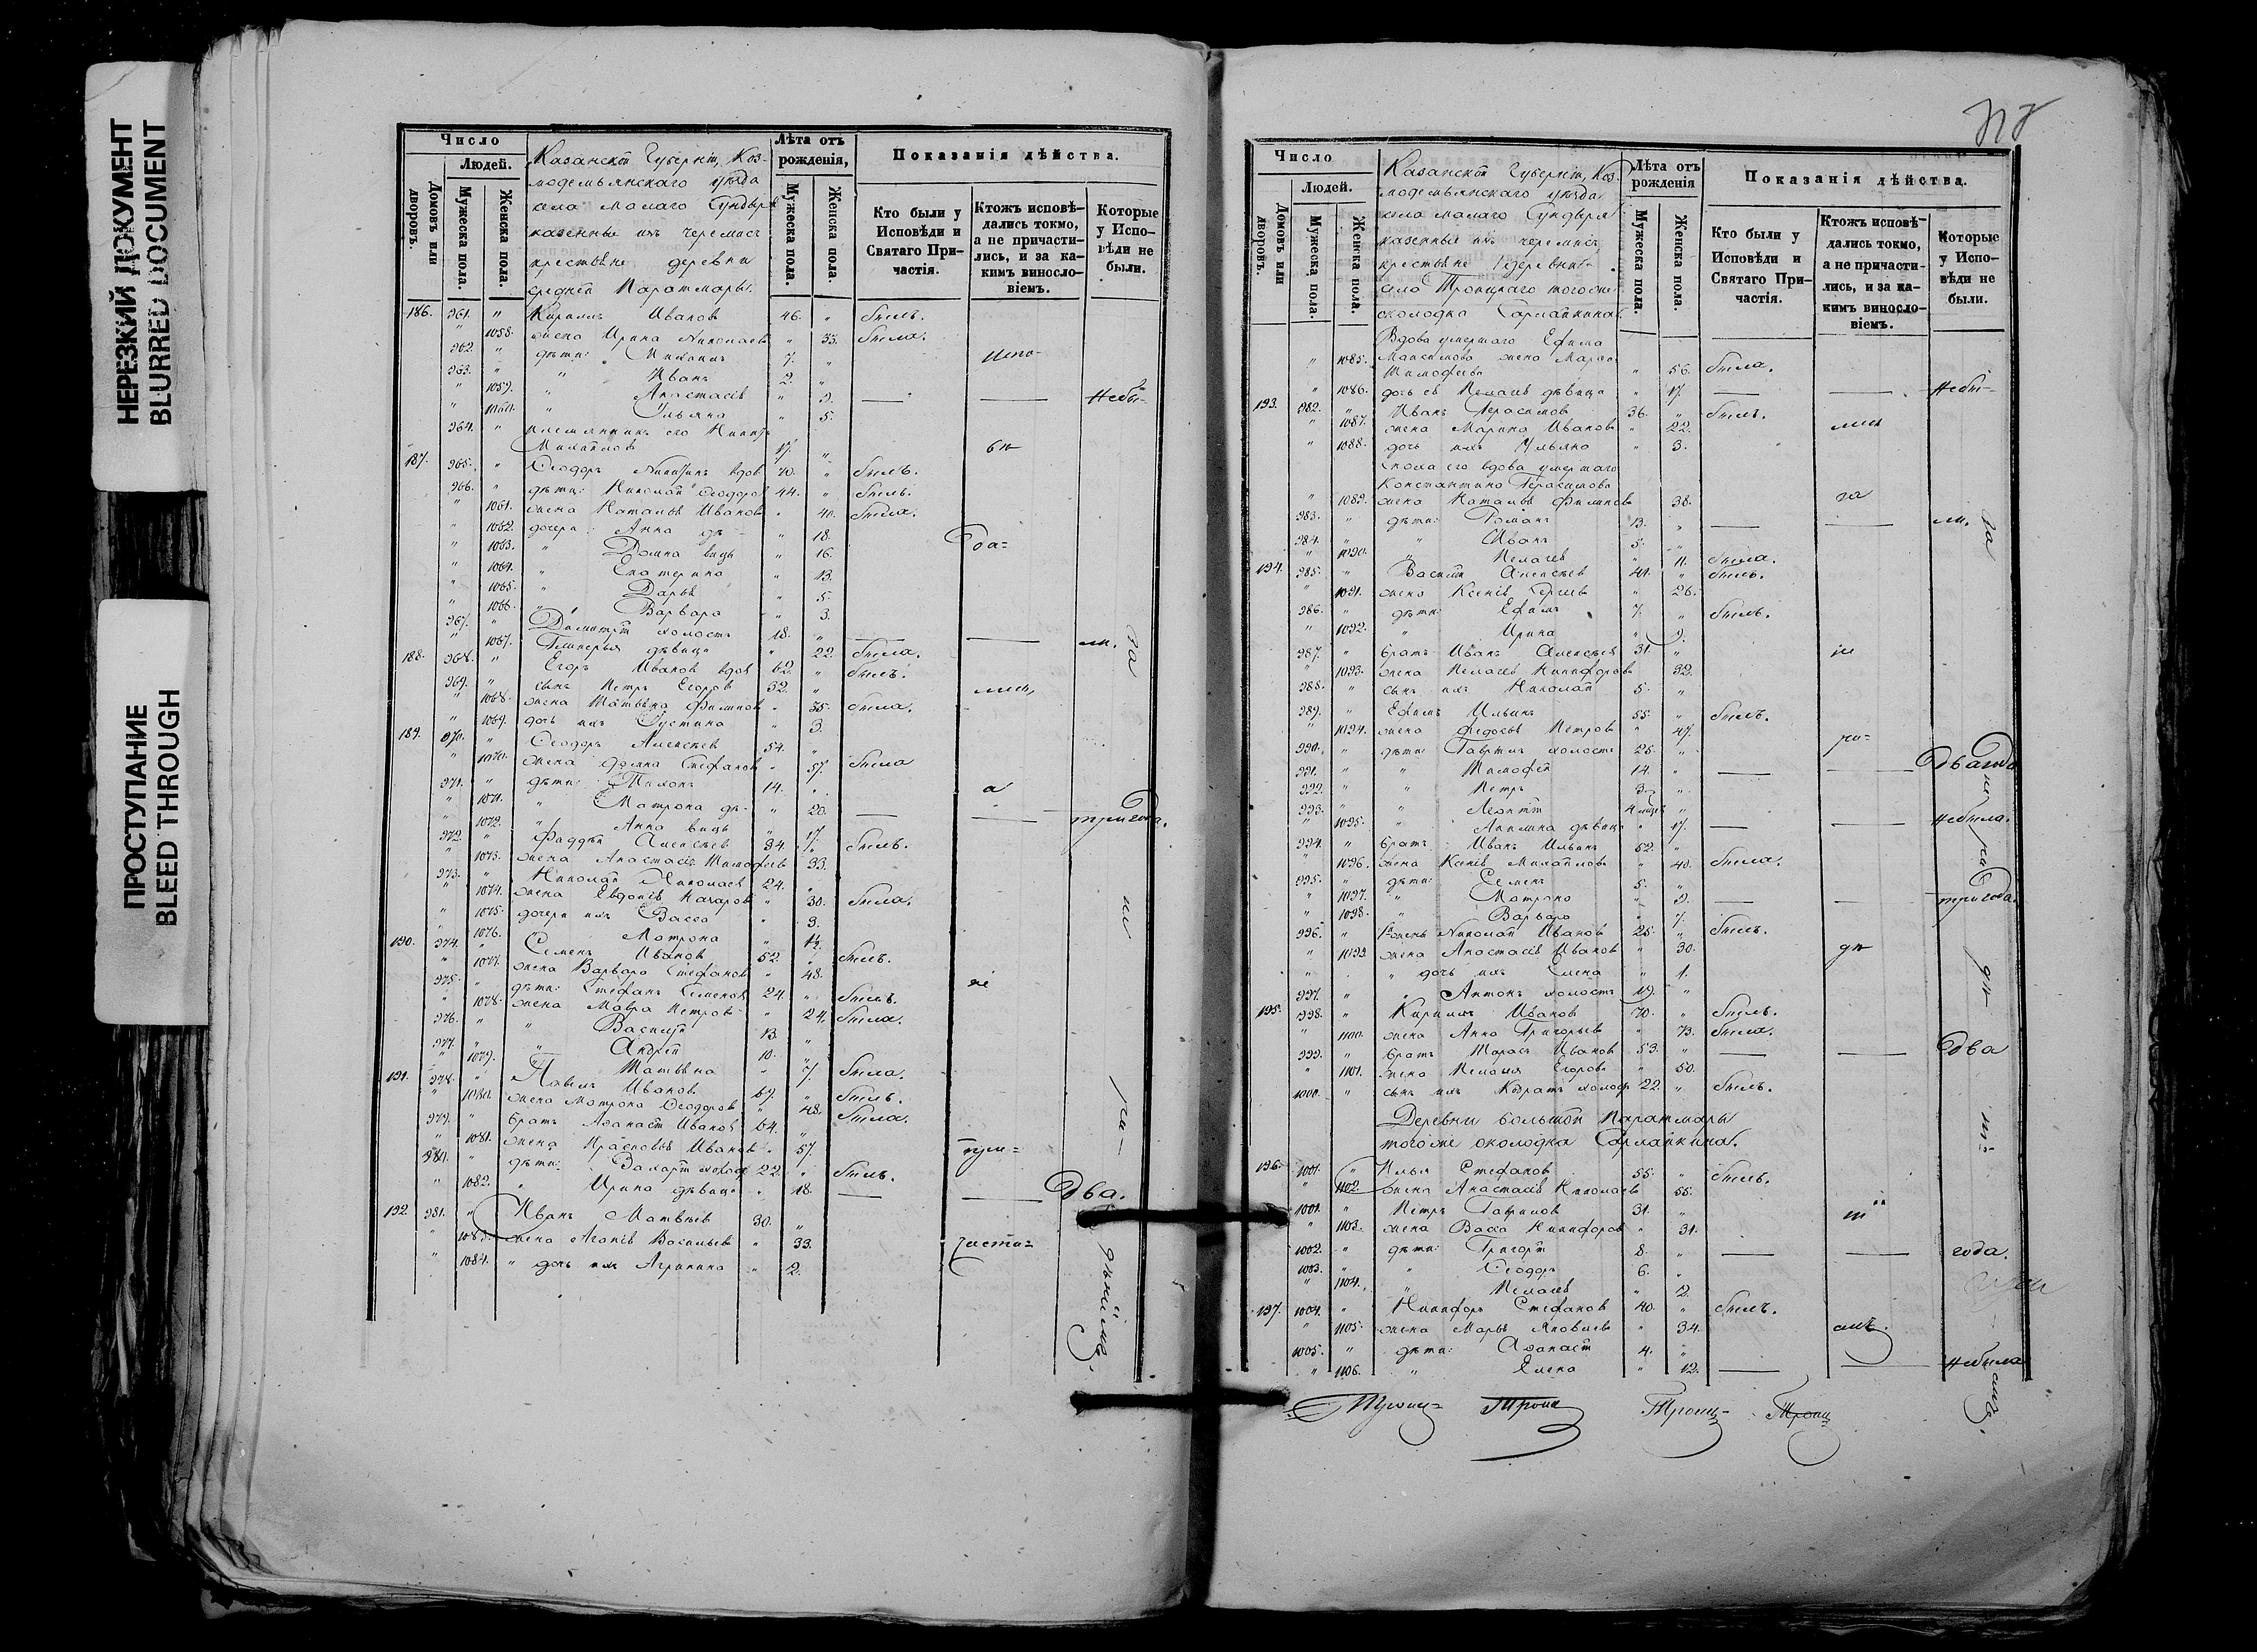 НЕРЕЗКИЙ ДОКУМЕНТ
BLURRED DOCUMENT
ПРОСТУПАНИЕ
BLEED THROUGH
Число
Людей.
Домовъ или дворовъ.
Мужеска пола.
Женска пола.
Казанской Губерніи, Коз-
модемьянскаго уѣзда
села Малаго Сундыря
казенные изъ черемисъ
крестьяне деревни
средней Паратмары.
Лѣта отъ рожденія,
Мужеска пола.
Женска пола.
Показанія дѣйства.
Кто были у Исповѣди и Святаго Причастія.
Ктожъ исповѣдались токмо, а не причастились, и за какимъ винословіемъ.
Которые у Исповѣди не были.
186. 961. " Кириллъ Иванов 46. " былъ.
" 1058. жена Ирина Николаев " 33. была.
962. " дѣти: Михаилъ 7. "
963. " " Иванъ 2. "
" 1059. " Анастасія " 9.
" 1060. " Ульяна " 5.
964. " племянникъ его Никит
Михайлов 17. "
187. 965. " Ѳеодоръ Никитинъ вдов 70. " былъ.
966. " дѣти: Николай Ѳеодоров 44. " былъ.
" 1061. жена Наталья Иванов " 40. была.
" 1062. дочери: Анна дѣ- " 18.
" 1063. " Домна вицы " 16.
" 1064. " Екатерина " 13.
" 1065. " Дарья " 5.
" 1066. " Варвара " 3.
967. " Димитрій холостъ 18. "
" 1067. Гликерья дѣвица " 22. была.
188. 968. " Егоръ Иванов вдов 62. " былъ.
969. " сынъ Петръ Егоров 32. "
" 1068. жена Татьяна Филипов " 35. была.
" 1069. дочь ихъ Устинья " 3.
189. 970. " Ѳеодоръ Алексѣев 54. "
" 1070. жена Домна Стефанов " 57. была
971. " дѣти: Тихонъ 14. "
" 1071. " Матрона дѣ- " 20.
" 1072. " Анна вицы " 17.
972. " Фаддѣй Алексѣев 34. " былъ.
" 1073. жена Анастасія Тимофеев " 33.
973. " Николай Николаев 24. "
" 1074. жена Евдокія Назаров " 30. была.
" 1075. дочери ихъ Васса " 3.
" 1076. " Матрона " 1/2.
190. 974. " Семенъ Иванов 52. " былъ.
" 1077. жена Варвара Стефанов " 48.
975. " дѣти: Стефанъ Семенов 24. " былъ.
" 1078. жена Мавра Петров " 24. была.
976. " " Василій 13. "
977. " " Андрей 10. "
" 1079. " Татьяна " 7. была.
191. 978. " Павелъ Иванов 67. " былъ.
" 1080. жена Матрона Ѳеодоров " 48. была.
979. " братъ Аѳанасій Иванов 64. "
" 1081. жена Прасковья Иванов " 57.
980. " дѣти: Захарій холост 22. " былъ.
" 1082. " Ирина дѣвица " 18.
192. 981. " Иванъ Матвѣев 30. "
" 1083. жена Агапія Васильев " 33.
" 1084. " дочь ихъ Агрипина " 2.
Число
Людей.
Домовъ или дворовъ.
Мужеска пола.
Женска пола.
Казанской Губерніи, Коз-
модемьянскаго уѣзда
села Малаго Сундыря
казенные изъ черемисъ
крестьяне деревни
села Троицкаго тогоже
околодка Сарлайкина.
Лѣта отъ рожденія
Мужеска пола.
Женска пола.
Показанія дѣйства.
Кто были у Исповѣди и Святаго Причастія.
Ктожъ исповѣдались токмо, а не причастились, и за какимъ винословіемъ.
Которые у Исповѣди не были.
Вдова умершаго Ефима
" 1085. Максимова жена Марья
Тимофеев " 56. была.
" 1086. дочь ея Пелагея дѣвица " 17.
193. 982. " Иванъ Герасимов 36. " былъ.
" 1087. жена Марина Иванов " 22.
" 1088. дочь ихъ Ульяна " 3.
Сноха его вдова умершаго
Константина Герасимова
" 1089. жена Наталья Филипов " 38.
983. " дѣти: Романъ 13. "
984. " " Иванъ 5. "
" 1090. " Пелагея " 11. была.
194. 985. " Василій Алексѣев 41. " былъ.
" 1091. жена Ксенія Сергеев " 26.
986. " дѣти: Ефимъ 7. " былъ.
" 1092. " Ирина " 9.
987. " братъ Иванъ Алексѣев 31. "
" 1093. жена Пелагея Никифоров " 32.
988. " сынъ ихъ Николай 5. "
989. " Ефимъ Ильинъ 55. " былъ.
" 1094. жена Федосья Петров " 47.
990. " дѣти: Гаврилъ холостъ 25. "
991. " " Тимофей 14. "
992. " " Петръ 3. "
993. " " Леонтій "
" 1095. " Акилина дѣвица " 17.
994. " братъ Иванъ Ильинъ 52. "
" 1096. жена Ксенія Михайлов " 40. была.
995. " дѣти: Семенъ 5. "
" 1097. " Матрона " 9.
" 1098. " Варвара " 7.
996. " Николай Иванов 25. " былъ.
" 1099. жена Анастасія Иванов " 30.
" " дочь ихъ Елена " 1.
997. " " Антонъ холостъ 19. "
195. 998. " Кириллъ Иванов 70. " былъ.
" 1100. жена Анна Григорьев " 73. была.
999. " братъ Тарасъ Иванов 53. "
" 1101. жена Пелагея Егоров " 50.
1000. " сынъ ихъ Кодратъ холост 22. " былъ.
Деревни Большой Паратмары
тогоже околодка Сарлайкина.
196. 1001. " Илья Стефанов 55. " былъ.
" 1102. жена Анастасія Николаев " 55.
1001. " Петръ Гаврилов 31. "
" 1103. жена Васса Никифоров " 31.
1002. " дѣти: Григорій 8. "
1003. " " Ѳеодоръ 6. "
" 1104. " Пелагея " 2.
197. 1004. " Никифоръ Стефанов 40. " былъ.
" 1105. жена Марья Яковлев " 34.
1005. " дѣти: Аѳанасій 4. "
" 1106. " Елена " 12. небыла
Троиц- Троиц Троиц- Троиц-